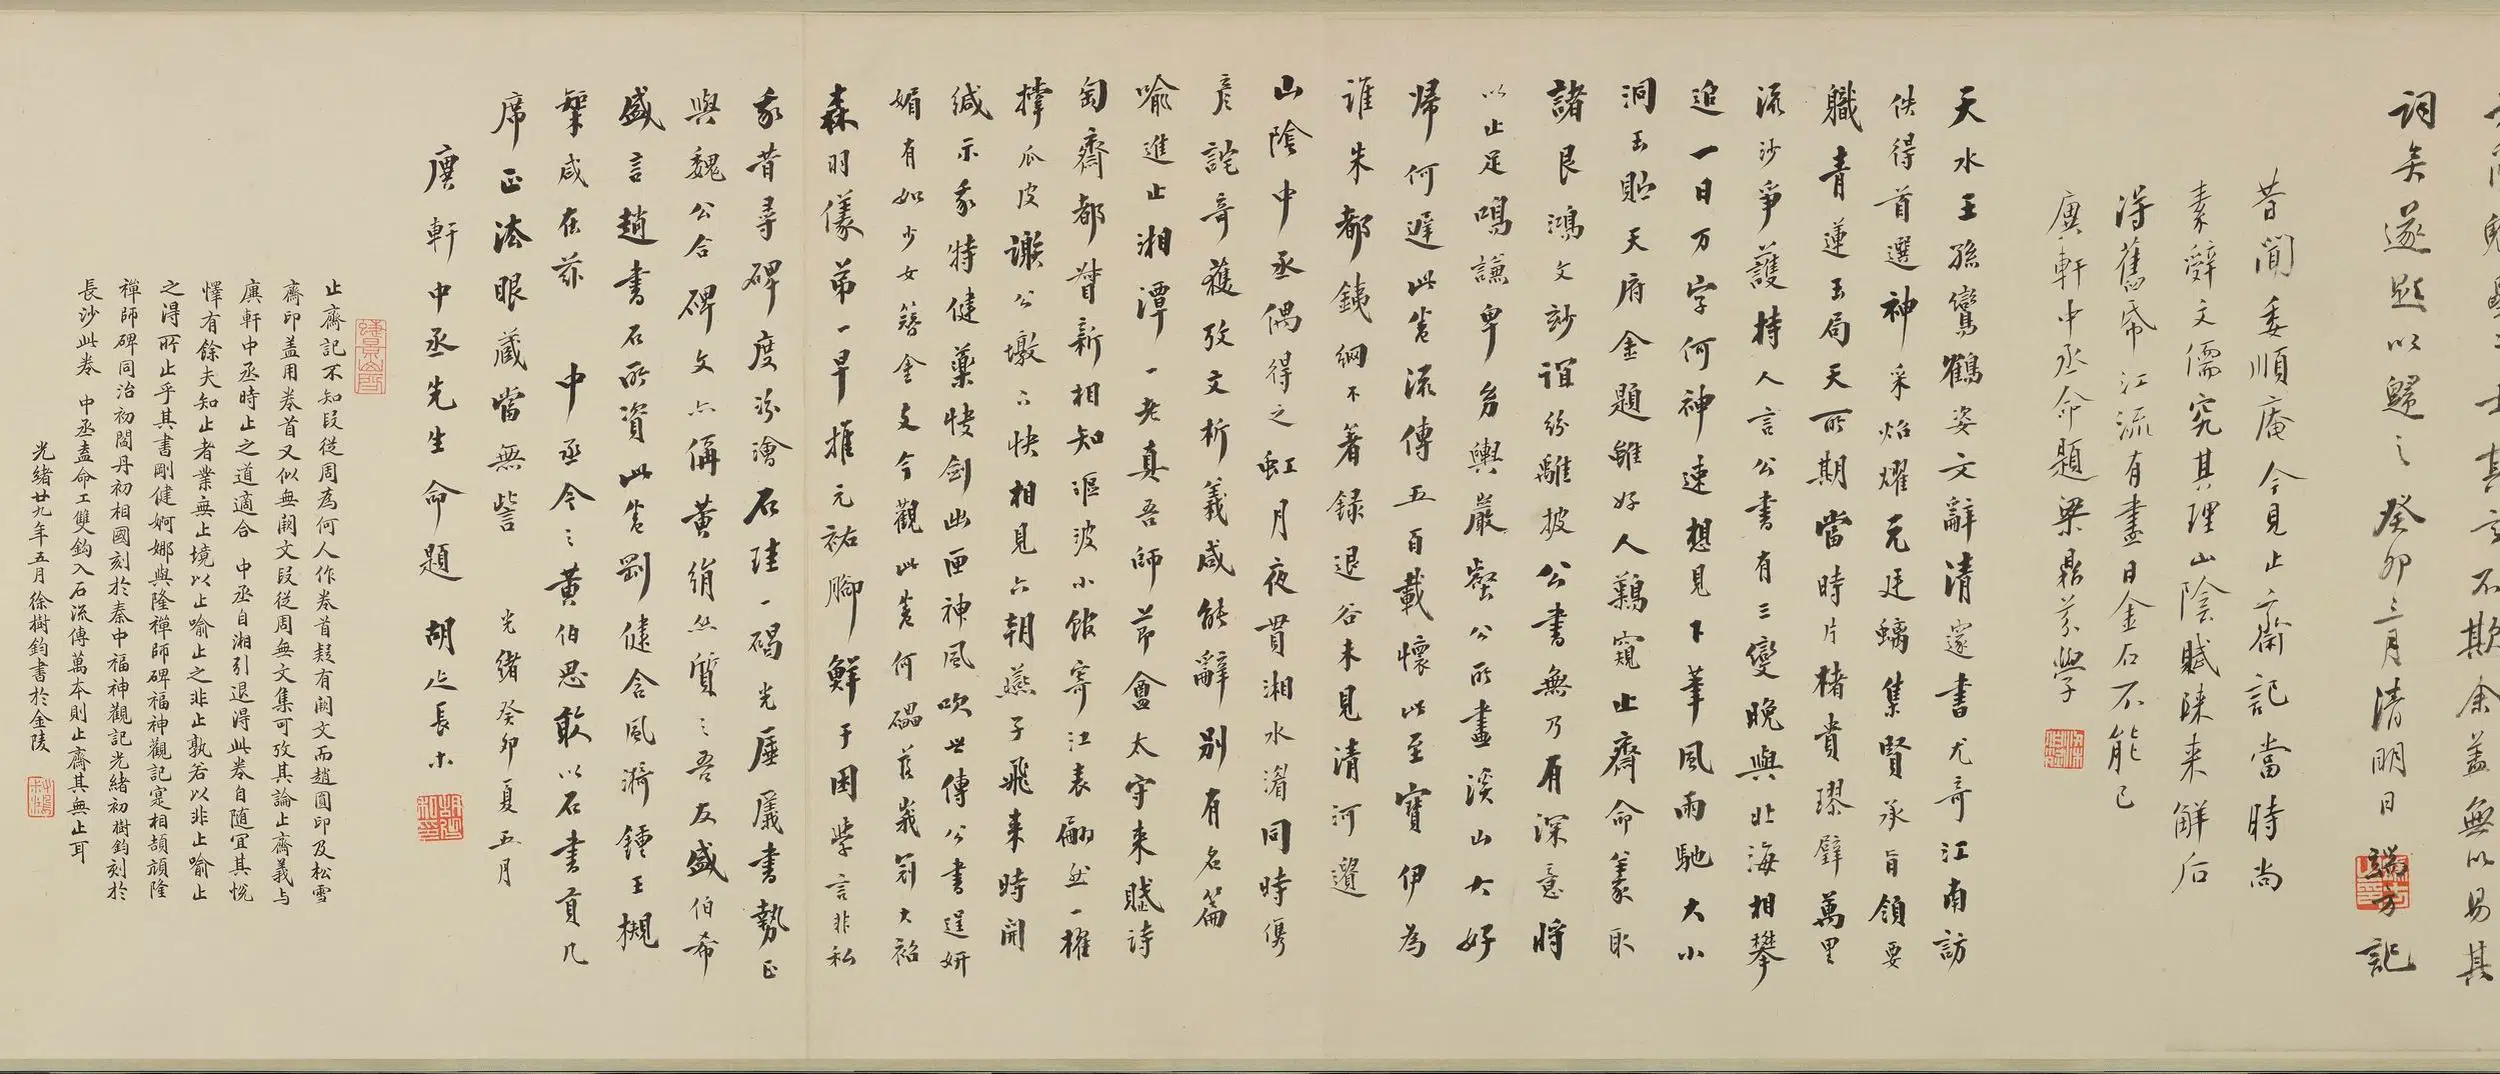 其言不欺余蓋無以易其
詞矣遂題以歸之癸卯三月清明日端方記
昔聞委順庵今見止齋記當時尚
素辭文儒究其理山陰賦陳來解后
得舊帋江流有盡日金石不能已
廙軒中丞命題梁鼎芬學
天水王孫鸞鶴姿文辭清邃書尤奇江南訪
佚得首選神采炤耀充廷螭集賢承旨領要
職青蓮玉局天所期當時片楮貴璆璧萬里
流沙爭護持人言公書有三變晚與北海相攀
追一日万字何神速想見下筆風雨馳大小
洞玉貯天府金題雖好人鷄窺止齋命篆取
諸艮鴻文訬誼紛離披公書無乃有深意將
以止足鳴謙卑勞輿巖壑公所畫溪山大好
歸何遲此卷流傳五百載懷此至寶伊為
誰朱都銕網不著録退谷未見清河遺
山陰中丞偶得之虹月夜貫湘水湄同時儁
彥詫奇獲攷文析義咸能辭別有名篇
喻進止湘潭一老真吾師節會太守來賦詩
匋齋都督新相知漚波小館寄江表翩然一櫂
撑瓜皮謝公墩上快相見六朝燕子飛來時開
緘示我特健藥快劍出匣神風吹世傳公書逞妍
媚有如少女簪金支今觀此卷何礧砢峩冠大袑
森羽儀弟一早推元祐腳鮮于困學言非私
我昔尋碑度汾澮石珪一碣光厜㕒書勢正
與魏公合碑文亦偁黃絹絲質之吾友盛伯希
盛言趙書石所資此卷剛健含風漪鍾王槻
榘咸在茲 中丞今之黃伯思敢以石書貢几
席正法眼藏當無訾 光緒癸卯夏五月
廙軒中丞先生命題 胡長木
止齋記不知段從周為何人作卷首疑有闕文而趙圓印及松雪
齋印蓋用卷首又似無闕文段從周無文集可攷其論止齋義与
廙軒中丞時止之道適合 中丞自湘引退得此卷自隨宜其悅
懌有餘夫知止者業無止境以止喻止之非止孰若以非止喻止
之得所止乎其書剛健婀娜與隆禪師碑福神觀記寔相頡頏隆
禪師碑同治初閻丹初相國刻於秦中福神觀記光緒初樹鈞刻於
長沙此卷 中丞盍命工雙鈎入石流傳萬本則止齋其無止耳
光緒廿九年五月徐樹鈞書於金陵